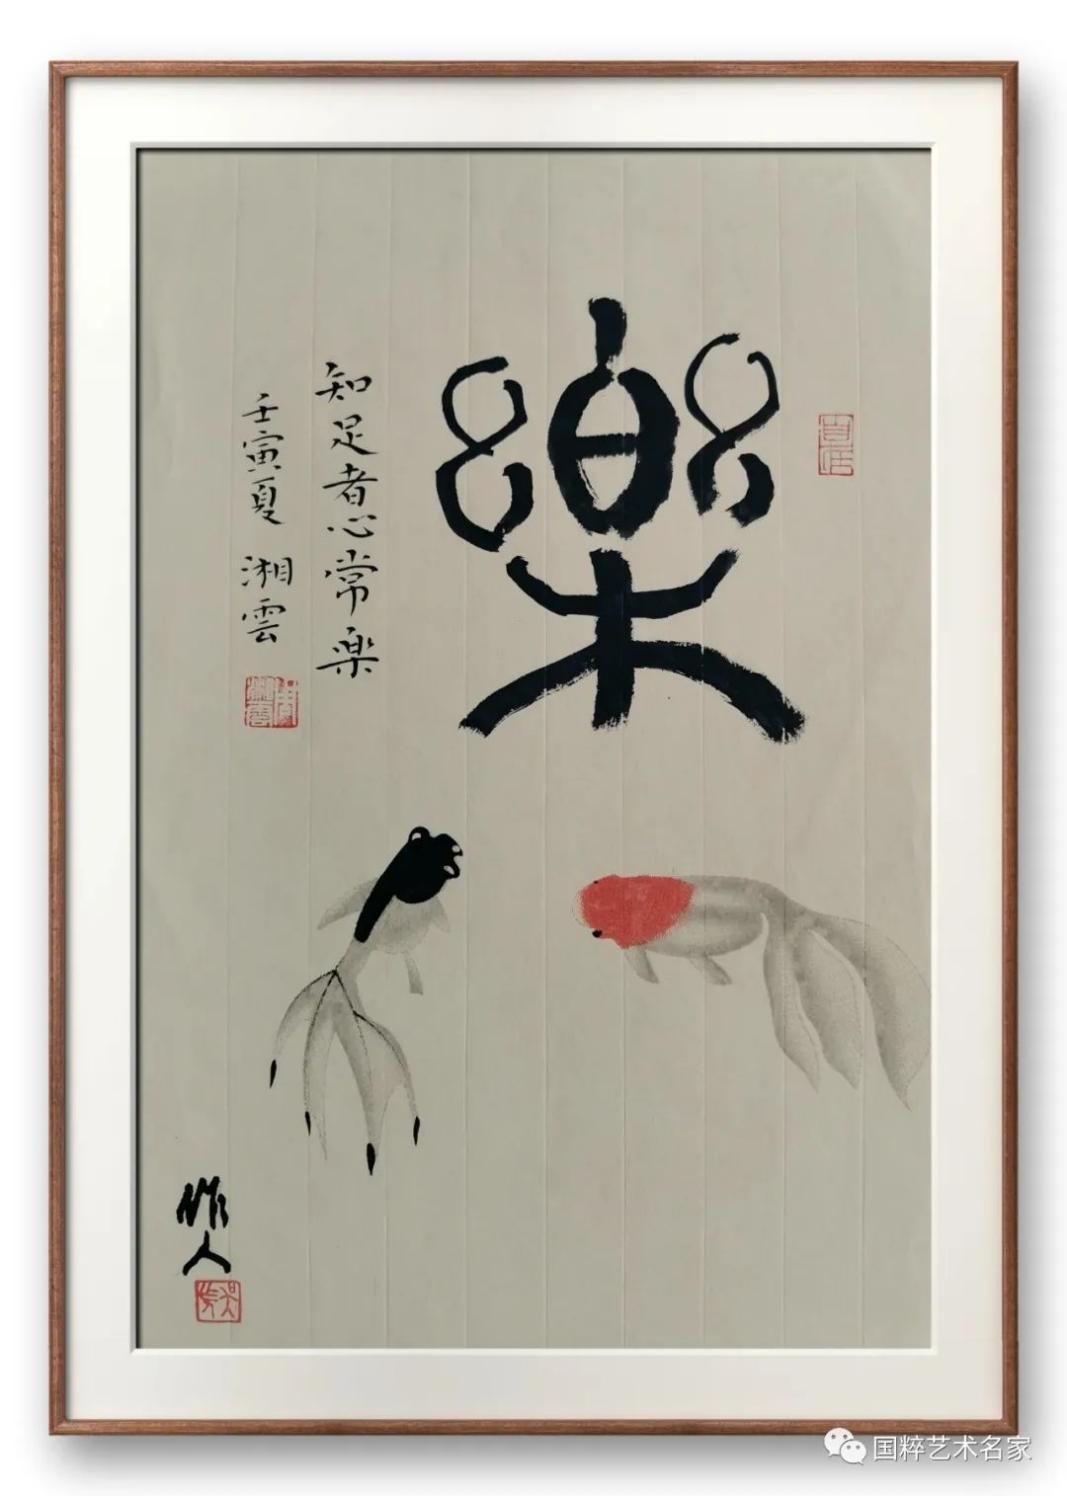 樂
知足者心常楽
壬寅夏 湘雲
作人
国粹艺术名家